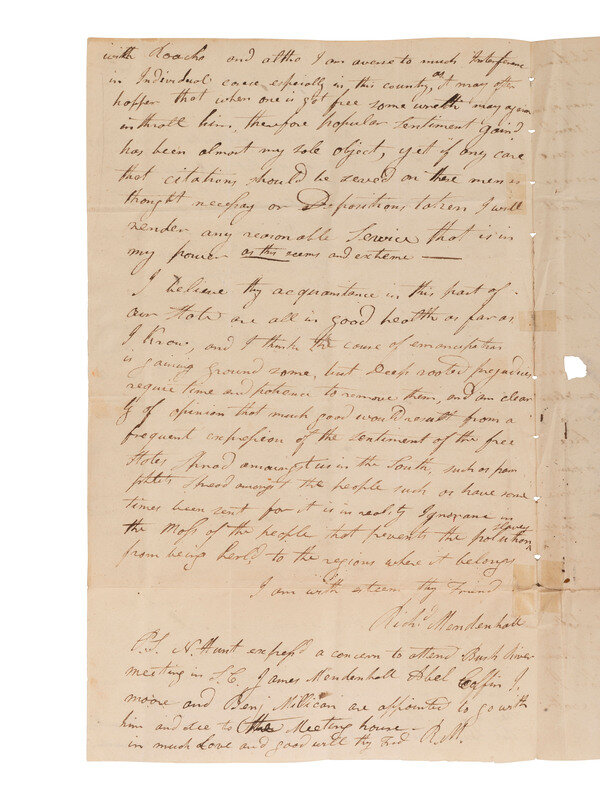 with Roachs and altho I am averse to much Interference
in Individual cases espicially in this country, as it may often
happen that when one is got free some wretch may again
inthroll him, therefore popular sentiment gaind
has been almost my sole object, yet if any case
that citations should be served on these men is
thought necessary or Depositions taken I will
render any reasonable Service that is in
my power as this seems and extreme —
I believe thy acquaintance in this part of
our State are all in good health as far as
I know, and I think the cause of emancipation
is gaining ground some, but Deep rooted prejudices
require time and patience to remove them, and am clear
ly of opinion that much good would result from a
frequent expression of the sentiment of the free
States spread amoungst us in the South, such as pam
phlets spread amongst the people such as have some
times been sent for it is in reality Ignorance in
the Mass of the people that prevents the polution slavery
from being herld to the regions where it belongs
I am with esteem thy Friend
Richd Mendenhall
P.S. N. Hunt expressd a concern to attend Bush River
meeting in S.C. James Mendenhall Abel Coffin J.
moore and Benj. Millican are appointed to go with
him and see to the Meeting house —
in much Love and good will thy Frd R.M.